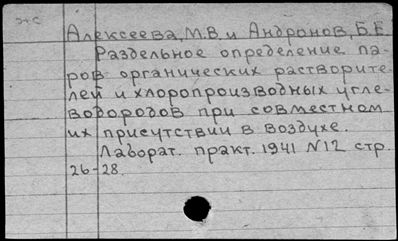 Алексеева, М.В. и Андронов, Б.Е.
Раздельное определение па-
ров органических раствори­те-
лей и хлоропроизводных угле-
водородов при совместном
их присутствии в воздухе.
Лаборат. практ. 1941 N12 стр.
26-28.